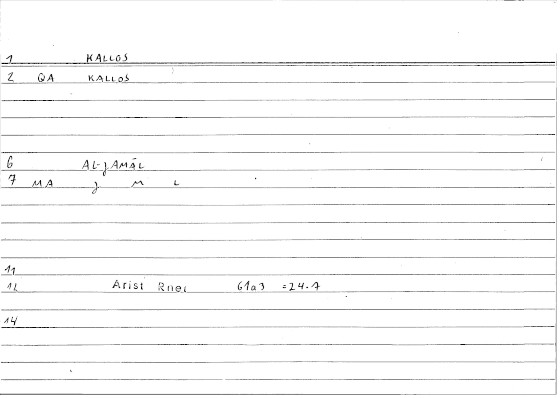 1 KALLOS
2 QA KALLOS
6 AL-JAMĀL
7 MA J M L
11
12 Arist Rhet 61a3 =24.7
14